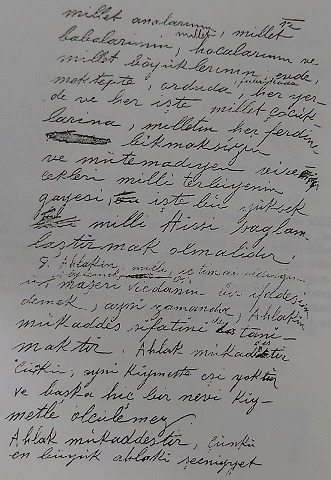 12
millet analarının, millet
babalarının, millet hocalarının ve
millet büyüklerinin, evde,
mektepte, orduda, her yer
de ve her işte millet çocuk
larına, milletin her ferdine
bıkmaksızın
ve mütemadiyen verecekleri
milli terbiyenin
gayesi, işte bu yüksek
milli hissi sağlam
laştırmak olmalıdır.
Ahlakın milli, içtimai olduğunu
maşeri vicdanın bir ifadesidir
demek, aynı zamanda, Ahlakın
mukaddes sıfatını da tanı-
maktır. Ahlak mukaddestir
Çünkü, aynı kıymette eşi yoktur
ve başka hiç bir nevi kıy-
metle ölçülemez.
Ahlak mukaddestir, çünkü
en büyük ahlaki seciyyet